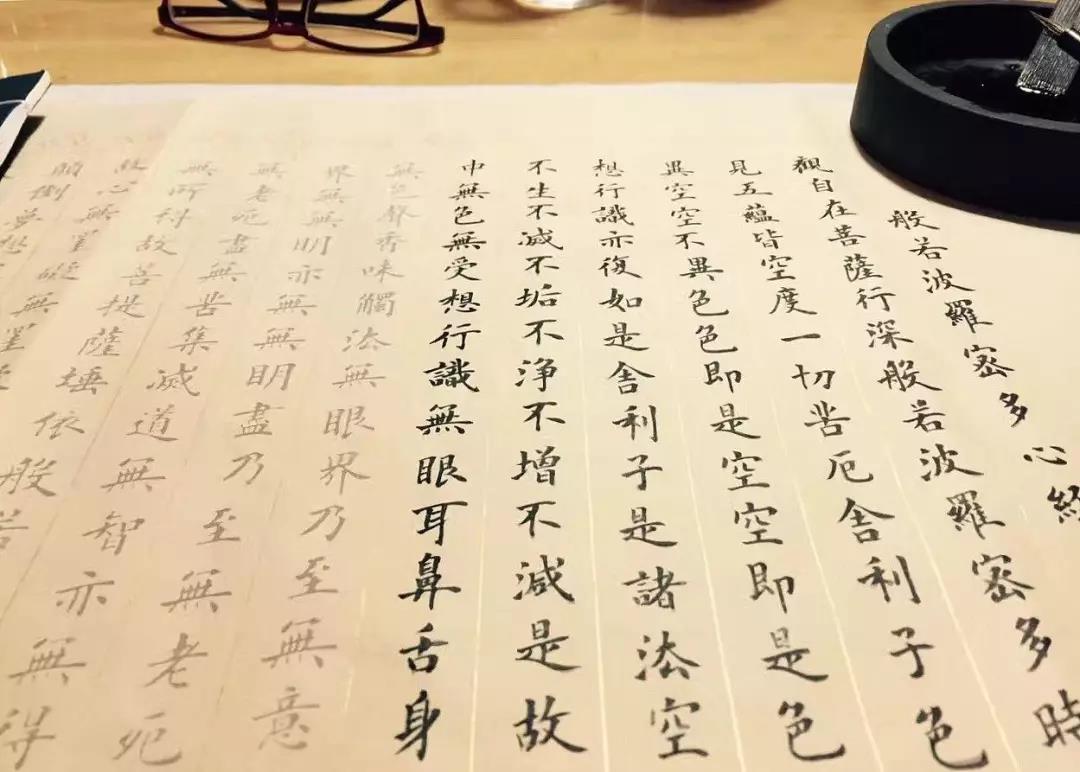 般若波羅密多心經
觀自在菩薩行深般若波羅密多時
見五蘊皆空度一切苦厄舍利子色
異空空不異色色即是空空即是色
想行識亦復如是舍利子是諸法空
不生不滅不垢不浄不增不減是故
中無色無受想行識無眼耳鼻舌身
無色聲香味觸法無眼界乃至無意
界無無明亦無無明盡乃至無老死
無老死盡無苦集滅道無智亦無得
無所得故菩提薩埵依般若
故心無罣礙無罣
顛倒夢想